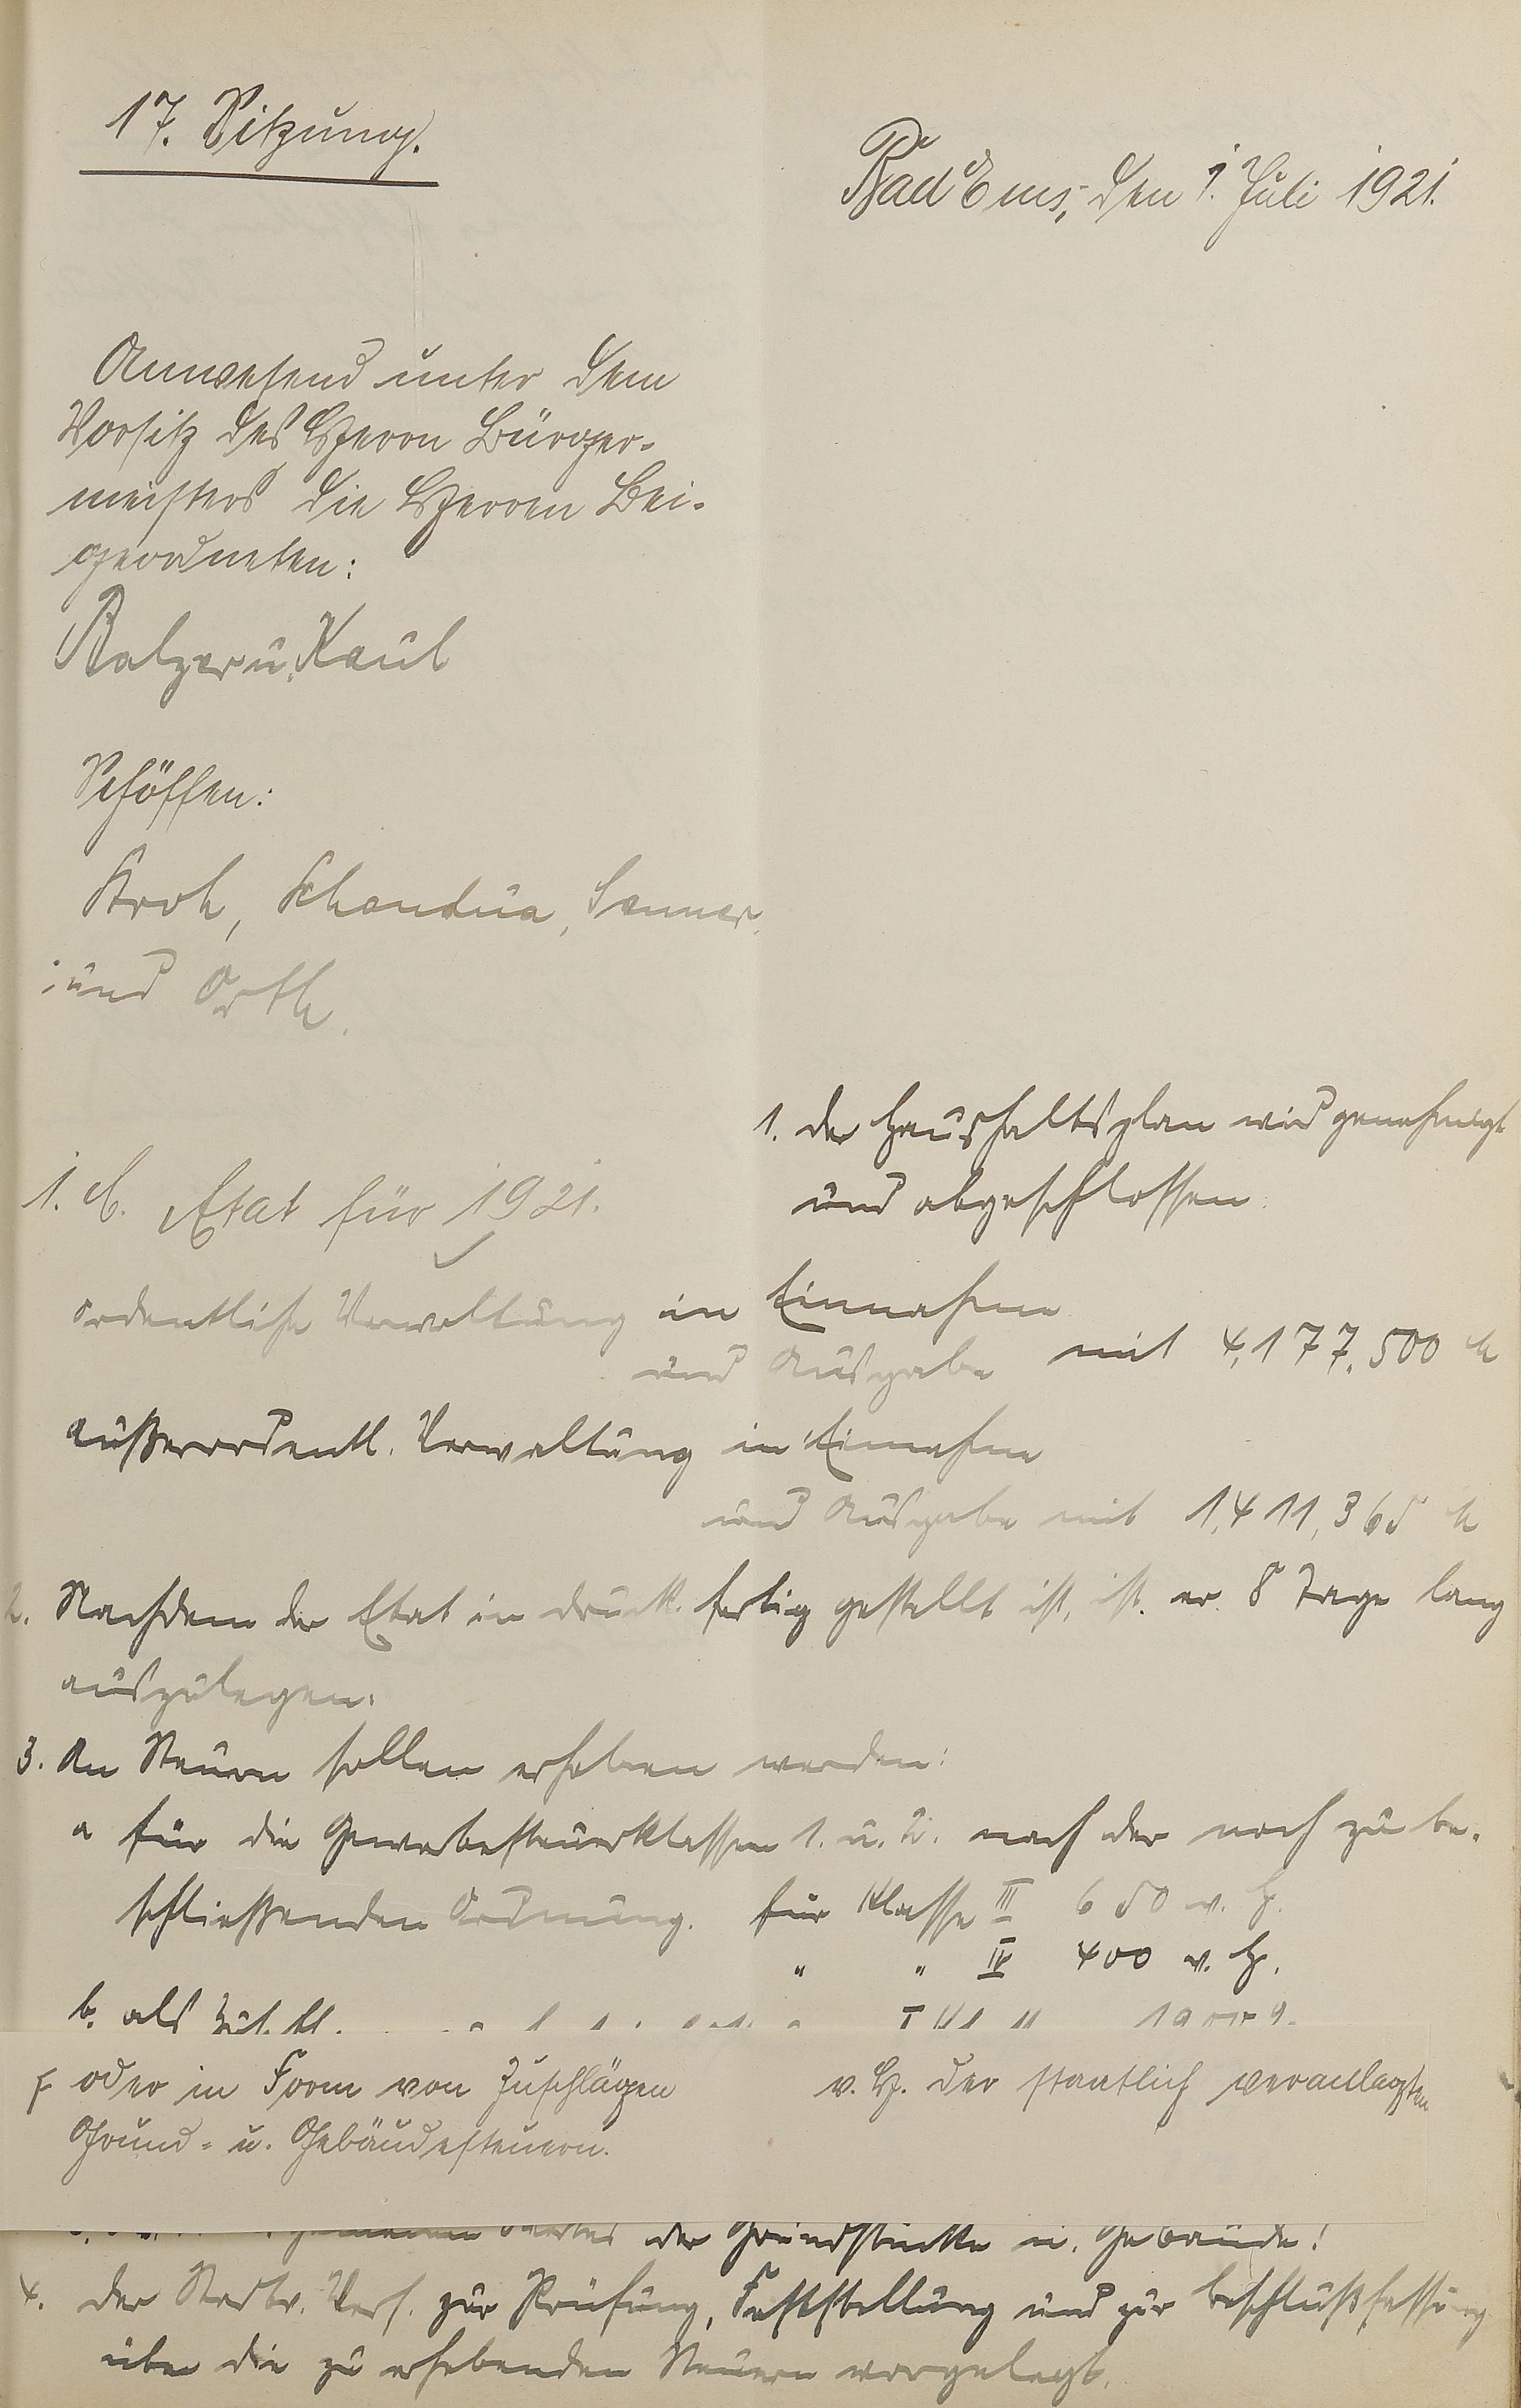 17. Sitzung.
Bad Ems, den 1. Juli 1921.
Anwesend unter dem
Vorsitz des Herrn Bürger-
meisters die Herren Bei-
geordneten:
Balzer u. Kaul
Schöffen:
Kroh, Schandua,
und Orth.
1. der Haushaltsplan wird genehmigt
und abgeschlossen
1. Etat für 1921.
ordentliche Verwaltung in Einnahme
und Ausgabe mit 4,177,500 M
außerordentl. Verwaltung in Einnahme
und Ausgabe mit 1,411,365 M
2. Nachdem der Etat in Druck fertig gestellt ist, ist er 8 Tage lang
auszulegen.
3. An Steuern sollen erhoben werden:
a für die Gewerbesteuerklassen 1. u. 2. nach der noch zu be-
schließenden Ordnung. für Klasse III 650 v. H.
" " IV 400 v. H.
b. als
oder in Form von Zuschlägen v. H. der staatlich veranlagten
Grund- u. Gebäudesteuern.
der Grundstücke u. Gebäude!
4. der Stadtv. Vers. zur Prüfung, Feststellung und zur Beschlußfassung
über die zu erhebenden Steuern vorgelegt.